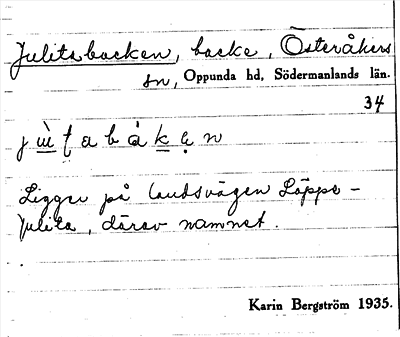 Julitabacken, backe, Österåkers
sn, Oppunda hd, Södermanlands län.
34
Ligger på landsvägen Läppe-
Julita, därav namnet.
Karin Bergström 1935.